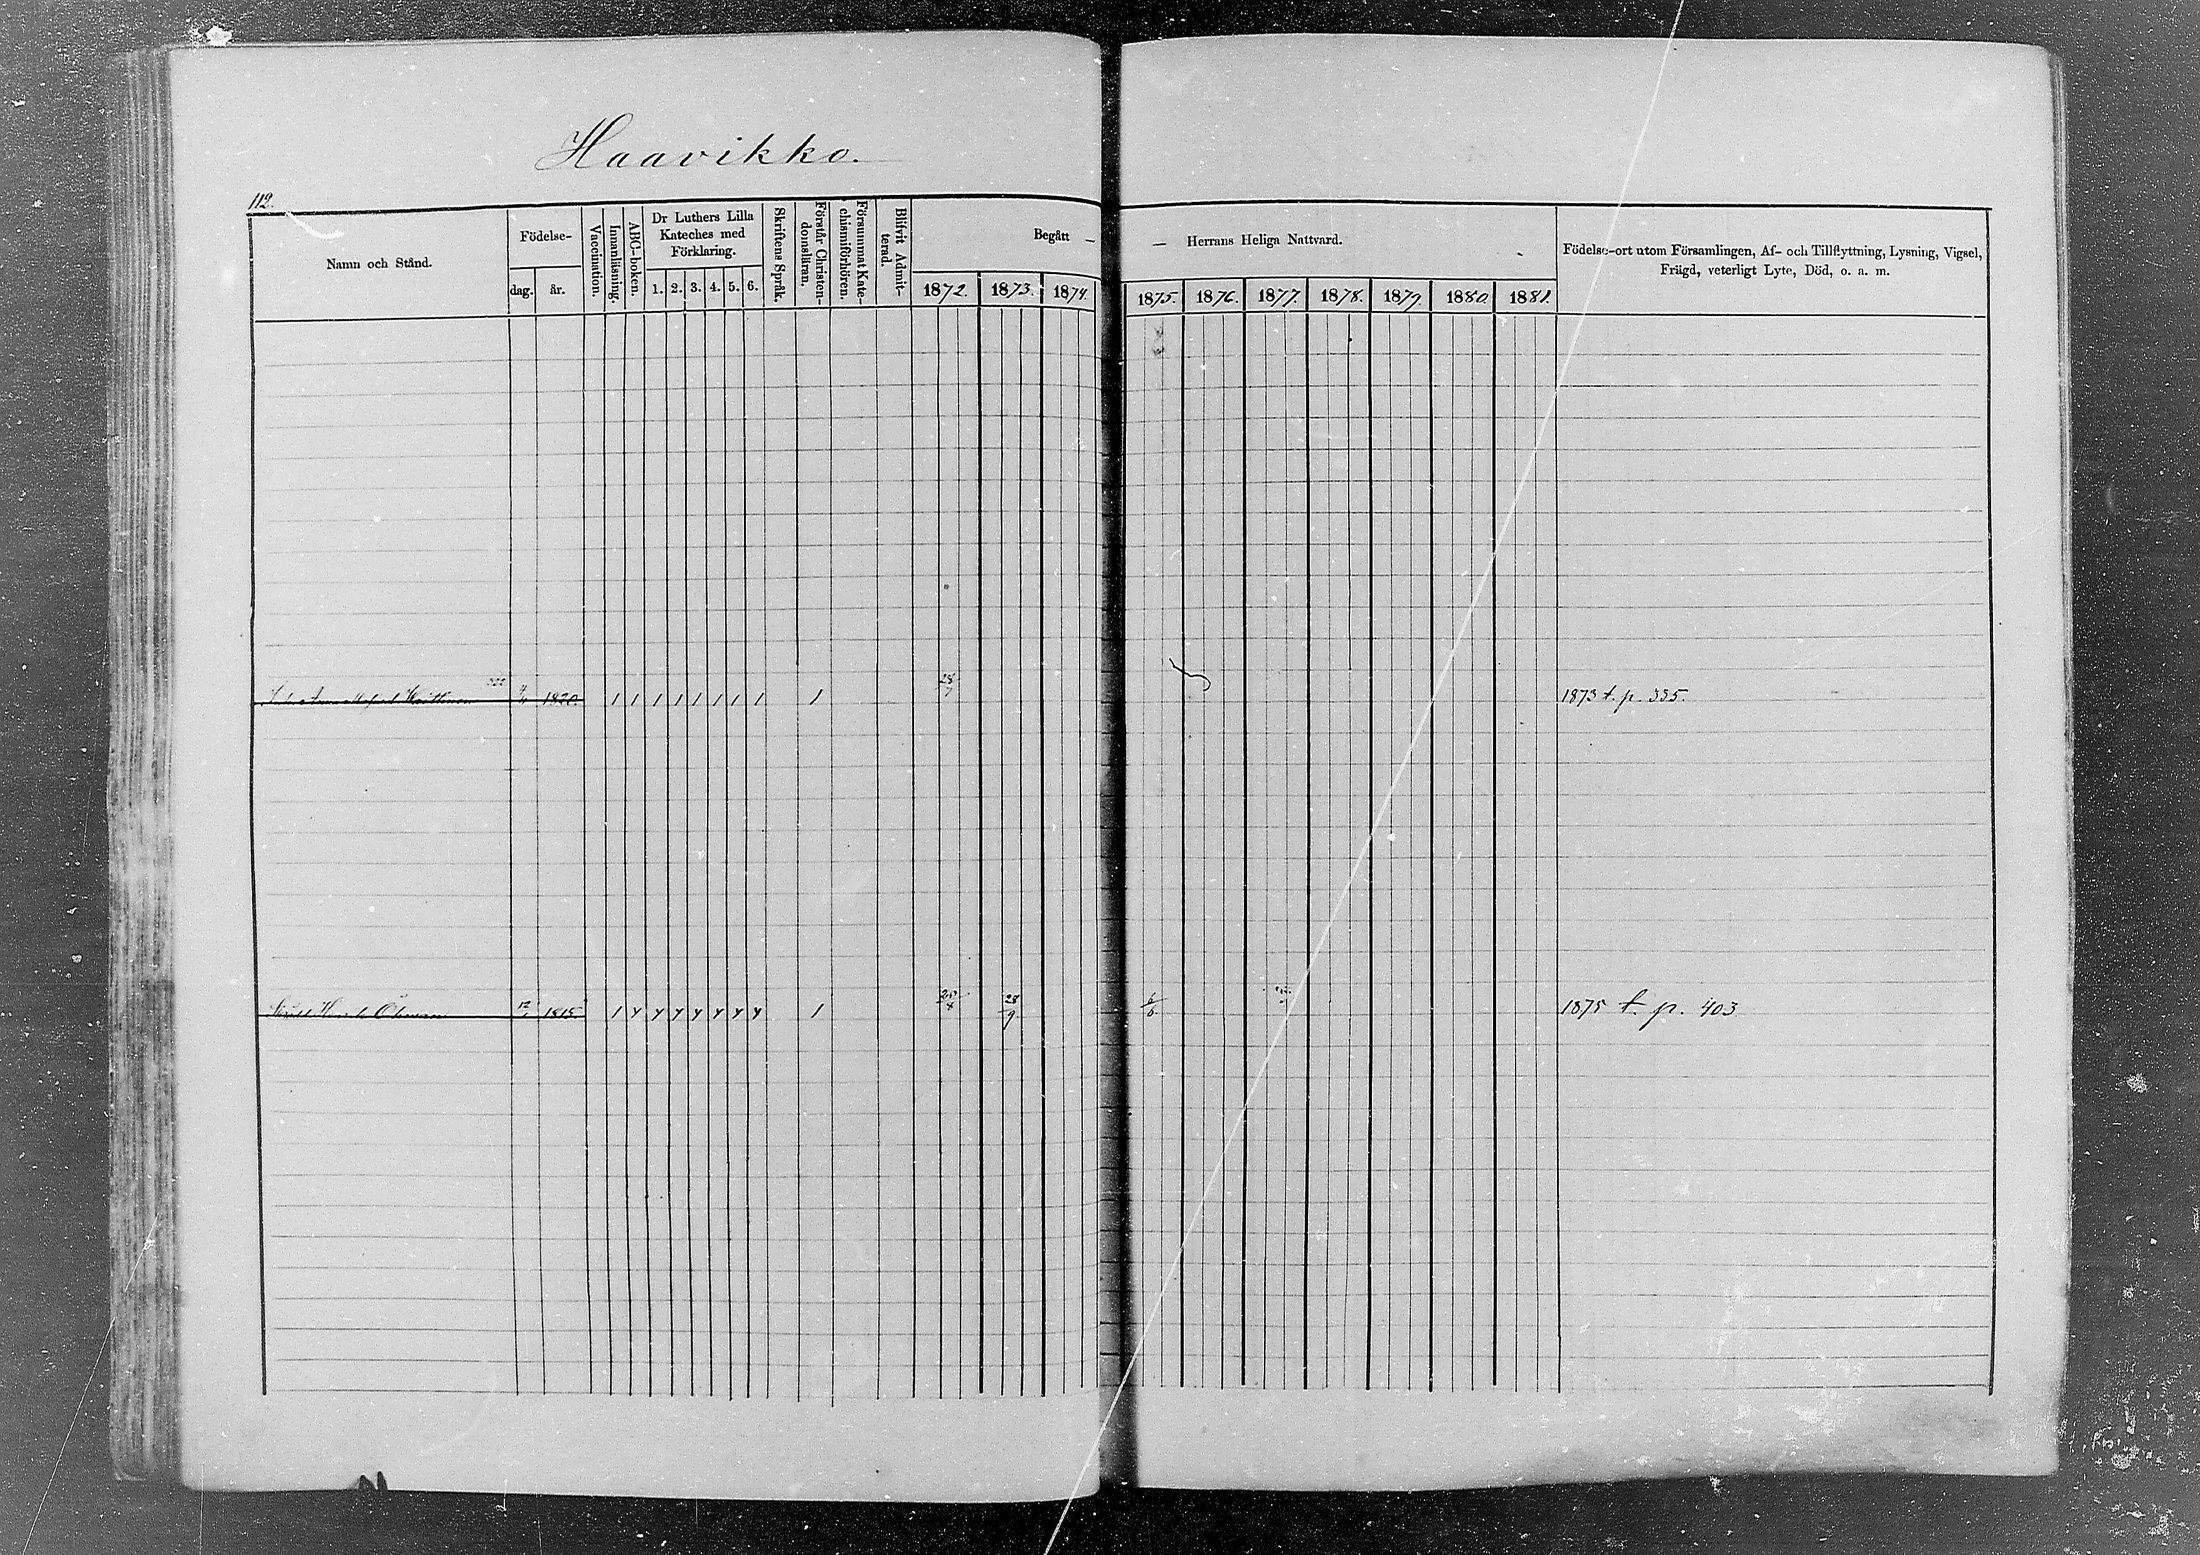 Haavikko.
112.
Namn och Stånd.
Födelse-
dag.
år.
Vaccination.
Innanläsning.
ABC-boken.
Dr Luthers Lilla
Kateches med
Förklaring.
1. 2. 3. 4. 5. 6.
Skriftens Språk.
Förstår Christen-
domsläran.
Försummat Kate-
chismiförhören.
Blifvit Admit-
terad.
Begått —
— Herrans Heliga Nattvard.
1872. 1873. 1874.
1875. 1876. 1877. 1878. 1879 1880 1881.
Födelse-ort utom Församlingen, Af- och Tillflyttning, Lysning, Vigsel,
Frägd, veterligt Lyte, Död, o. a. m.
322
Anna 1820. 1 1 1 1 1 1 1 1 1 28/7 1873 t. p. 335.
1815 1 Y Y Y Y Y Y Y 1 28/9 6/6 1875 t. p. 403